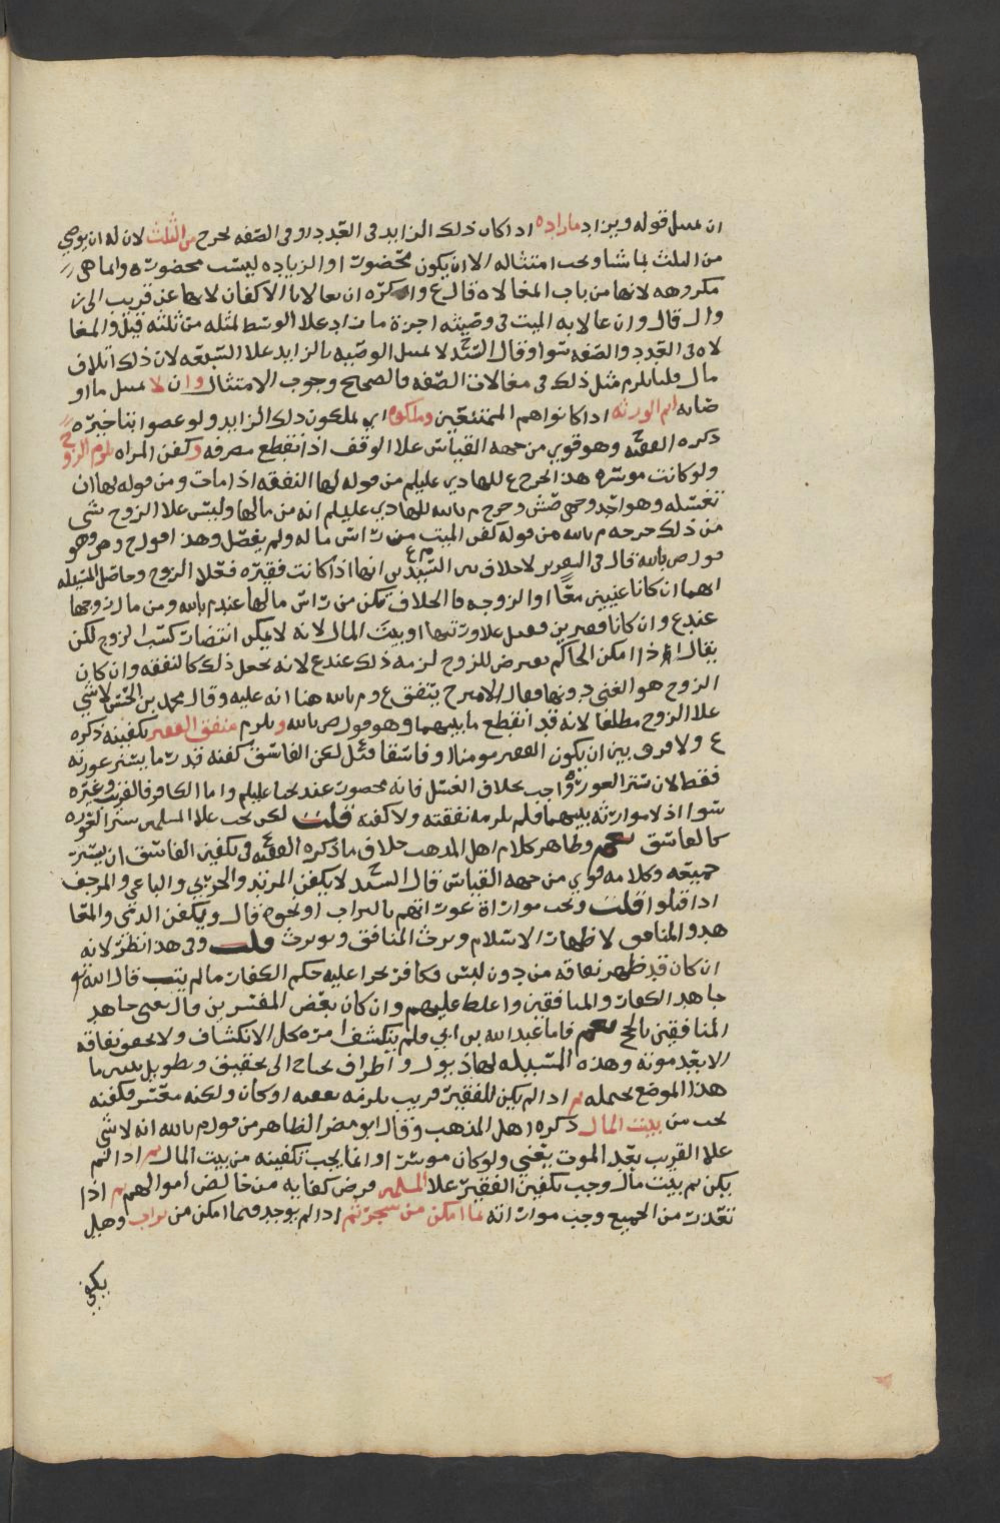 ان مىىىل قوله ويزاد ما راده اداكان ذلك الزايد فى العدد او فى الصفه لحرج من الثلث لان له ان يوصي
من الىلث لما شا ويجب امتثاله الا ان يكون محضورا والزياده ليست محضوره وانما هى
مكروهه لانها من باب المغالاه قال ع واكره ان ىغالا ىالاكفان لانها عن قريب الى
وال قال وان غالا به الميت فى وصيته اجزه ما زاد علا الوسط لمثله من ثلثه قيل والمغا
لاه فى العدد والصفه سوا وقال السيد لا ىمىىل الوصيه ىالزايد علا السبعه لان ذلك اتلاف
مال قلنا يلزم مثل ذلك فى مغالات الصفه والصحيح وجوب الامتثال وان لا ىمىىل ما او
صابه اثم الورثه اذا كانوا هم الممتنعين وملكوه اي ىملكون ذلك الزايد ولو عصوا بتاخيره
ذكره الفقيه وهو قوي من جهه القياس علا الوقف اذا انقطع مصرفه وكفن المراه ىلزم الزوج
ولو كانت موسره هذا لحرج ع للهادي عليلم من قوله لها النفقه اذا مات ومن قوله لها ان
تغسله وهو احد وحى صش وحرج م بالله للهادي عليلم انه من مالها وليس علا الزوج شى
من ذلك حرجه م بالله من قوله كفن الميت من راس ماله ولم يفصل وهذا قول ح وهو
قول ص بالله قال فى البحرىر لا خلاف بين السيدين انها اذا كانت فقيره فعلا الزوج وحاصل المسيله
انهما ان كانا غنيين معا او الزوجه فالخلاف يكن من راس مالها عند م بالله ومن مال زوجها
عند ع وان كانا فقيرين فقيل علا ورثتها او بيت المال لانه لا يمكن انتضار كسب الزوج لكن
يقال اذا امكن الحاكم ىقىرض للزوج لزمه ذلك عند ع لانه يجعل ذلك كالنفقه وان كان
الزوج هو الغنى دونها فقال الامير ح يتفق ع و م بالله هنا انه عليه وقال محمد بن الحسن لا شي
علا الزوج مطلقا لانه قد انقطع ما بينهما وهو قول ص بالله ويلزم منفق الفقير تكفينه ذكره
ع ولا فرق بين ان يكون الفقير مومنا او فاسقا قيل لكن الفاسق كفنه قدر ما يستر عورته
فقط لان ستر العوره واجب بخلاف الغسل فانه محصور عند يحيا عليلم واما الكافر فالقريب وغيره
سوا اذ لا موارثه بينهما فلم يلزمه نفقته ولا كفنه قلت لكن يجب علا المسلمين ستر العوره
كالفاسق نعم وظاهر كلام اهل المذهب خلاف ما ذكره الفقيه فى تكفين الفاسق ان يستر
جميعه وكلامه قوي من جهه القياس قال السيد لا يكفن المرتد والحربي والباغى والمرجف
اذا قتلوا قلت ويجب موارات عوراتهم بالتراب او نحوه قال ويكفن الذمى والمعا
هد والمنافق لاظهار الاسلام ويرث المنافق ويورث قلت وفى هذا نظر لانه
ان كان قد ظهر نفاقه من دون لبس فكافر يجرا عليه حكم الكفار ما لم يتب قال الله تع
جاهد الكفار والمنافقين واغلظ عليهم وان كان بعض المفسرين قال يعنى جاهد
المنافقين بالحج نعم فاما عبد الله بن ابي فلم ينكشف امره كل الانكشاف ولا تحقق نفاقه
الا بعد موته وهذه المسيله لها ذيول واطراف يحتاج الى تحقيق وتطويل ليس ما
هذا الموضع يحمله ثم اذا لم يكن للفقير قريب يلزمه نفقته او كان ولكنه معسر فكفنه
يجب من بيت المال ذكره اهل المذهب وقال ابو مضر الظاهر من قول م بالله انه لا شي
علا القريب بعد الموت يعني ولو كان موسرا وانما يجب تكفينه من بيت المال ثم اذا لم
يكن ثم بيت مال وجب تكفين الفقير علا المسلمين فرض كفايه من خالص اموالهم ثم اذا
تعذر من الجميع وجب مواراته بما امكن من شجر ثم اذا لم يوجد فما امكن من تراب وهل
يكفي